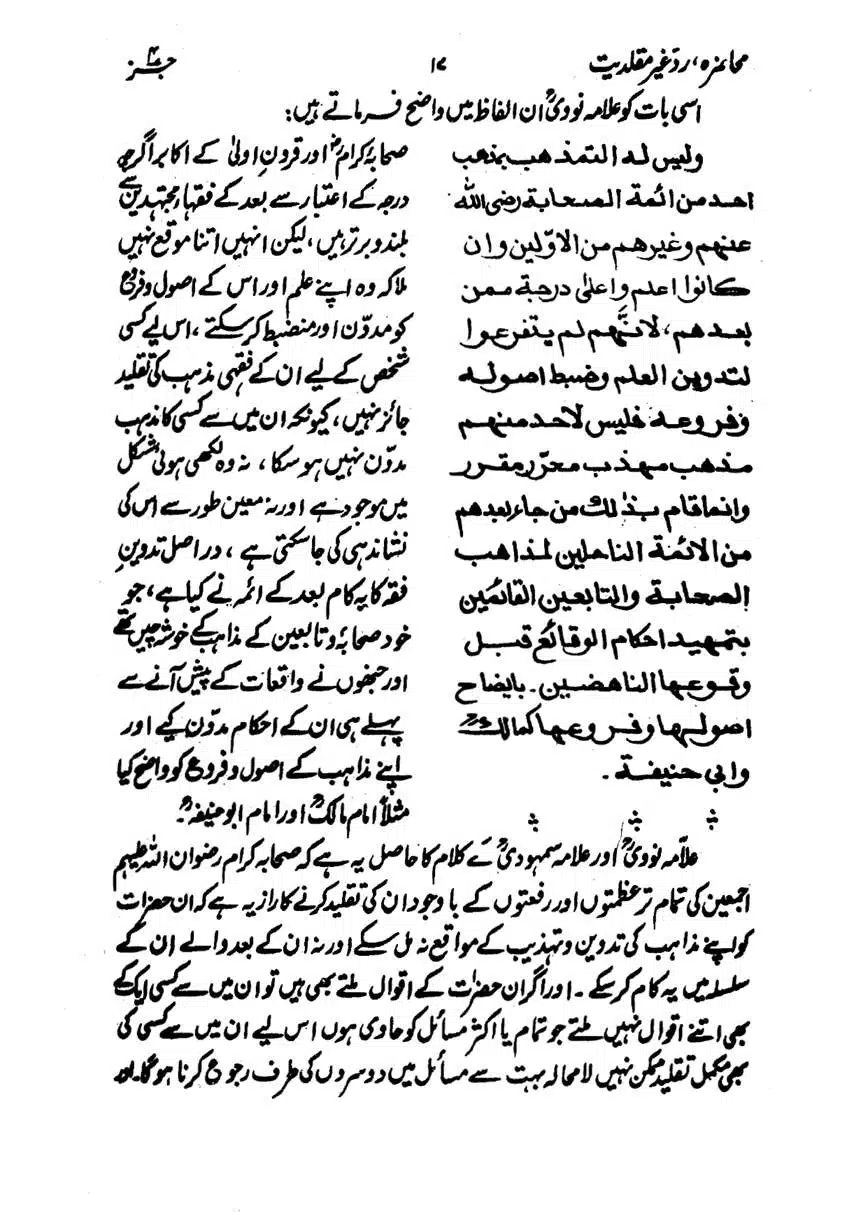 محاضرہ، ردّ غیر مقلدیت
۱۷
جز ۴
اسی بات کو علامہ نوویؒ ان الفاظ میں واضح فرماتے ہیں:
ولیس لہ التمذھب بمذھب
احد من ائمة الصحابة رضی اللہ
عنھم وغیرھم من الاوّلین وان
کانوا اعلم واعلیٰ درجة ممن
بعدھم، لانّھم لم یتفرعوا
لتدوین العلم وضبط اصولہ
وفروعہ فلیس لاحد منھم
مذھب مھذب محرّر مقرر
وانما قام بذٰلک من جاء بعدھم
من الائمة الناحلین لمذاھب
الصحابة والتابعین القائمین
بتمھید احکام الوقائع قبل
وقوعھا الناھضین۔ بایضاح
اصولھا وفروعھا کمالکؒ
وابی حنیفة۔
صحابۂ کرامؓ اور قرونِ اولیٰ کے اکابر اگرچہ
درجہ کے اعتبار سے بعد کے فقہاء مجتہدین سے
بلند و برتر ہیں، لیکن انہیں اتنا موقع نہیں
ملا کہ وہ اپنے علم اور اس کے اصول و فروع
کو مدوّن اور منضبط کرسکتے، اس لیے کسی
شخص کے لیے ان کے فقہی مذہب کی تقلید
جائز نہیں، کیونکہ ان میں سے کسی کا مذہب
مدوّن نہیں ہوسکا، نہ وہ لکھی ہوئی شکل
میں موجود ہے اور نہ معین طور سے اس کی
نشاندہی کی جاسکتی ہے، در اصل تدوینِ
فقہ کا یہ کام بعد کے ائمہ نے کیا ہے، جو
خود صحابہؓ و تابعین کے مذاہب کے خوشہ چیں تھے
اور جنھوں نے واقعات کے پیش آنے سے
پہلے ہی ان کے احکام مدوّن کیے اور
اپنے مذاہب کے اصول و فروع کو واضح کیا
مثلاً امام مالکؒ اور امام ابوحنیفہؒ۔
علامہ نوویؒ اور علامہ سمہودیؒ کے کلام کا حاصل یہ ہے کہ صحابہ کرام رضوان اللہ علیہم
اجمعین کی تمام تر عظمتوں اور رفعتوں کے باوجود ان کی تقلید کرنے کا راز یہ ہے کہ ان حضرات
کو اپنے مذاہب کی تدوین و تہذیب کے مواقع نہ مل سکے اور نہ ان کے بعد والے ان کے
سلسلہ میں یہ کام کرسکے۔ اور اگر ان حضرات کے اقوال ملتے بھی ہیں تو ان میں سے کسی ایک کے
بھی اتنے اقوال نہیں ملتے جو تمام یا اکثر مسائل کو حاوی ہوں اس لیے ان میں سے کسی کی
بھی مکمل تقلید ممکن نہیں لامحالہ بہت سے مسائل میں دوسروں کی طرف رجوع کرنا ہوگا۔ اور